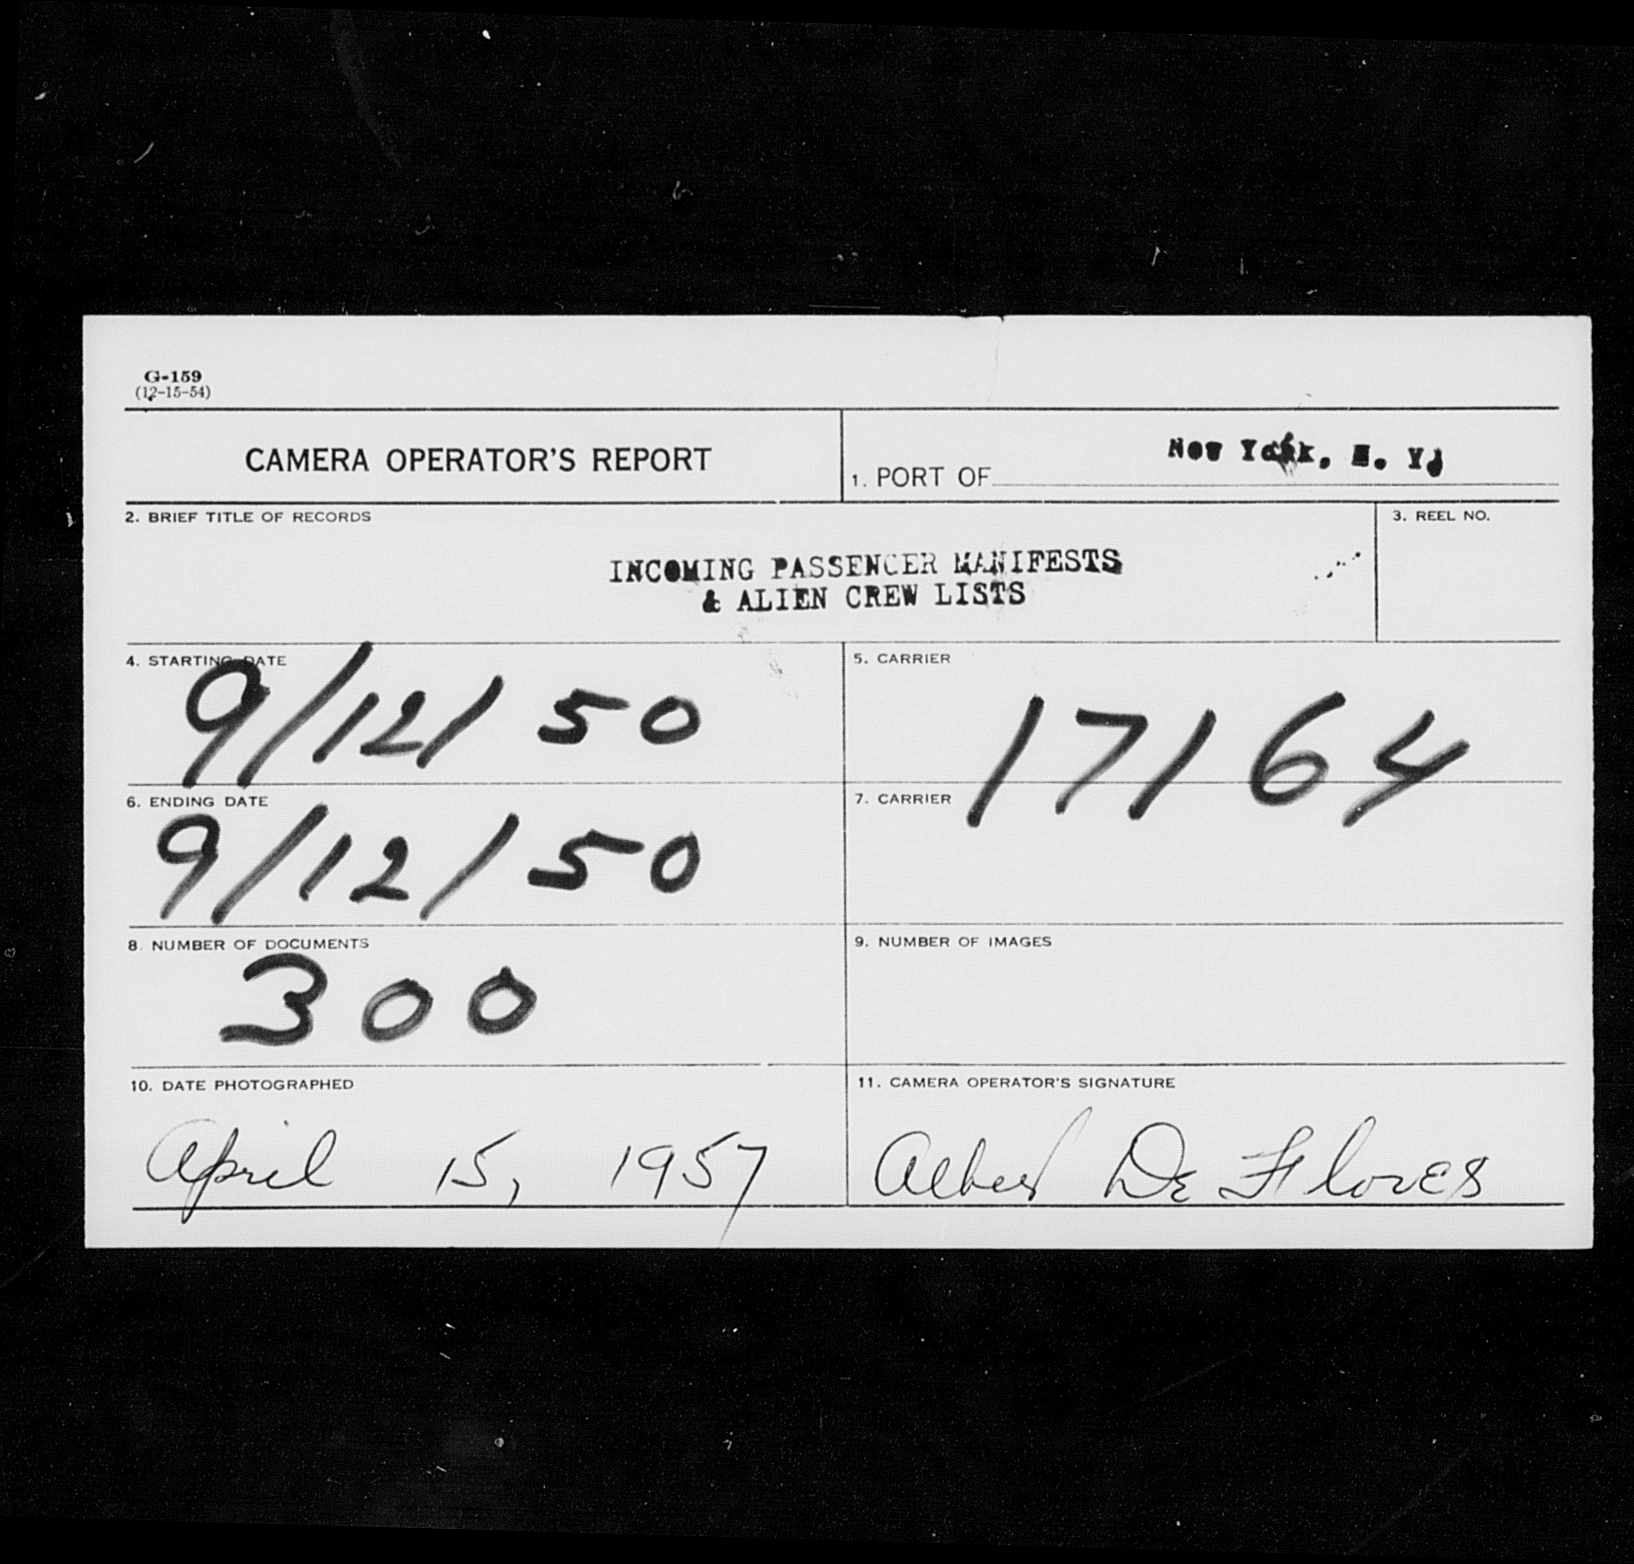 G-159
(12-15-54)
CAMERA OPERATOR'S REPORT
1. PORT OF New York, N. Y.
2. BRIEF TITLE OF RECORDS
3. REEL NO.
INCOMING PASSENGER MANIFESTS
& ALIEN CREW LISTS
4. STARTING DATE
9/12/50
5. CARRIER
17164
6. ENDING DATE
9/12/50
7. CARRIER
8. NUMBER OF DOCUMENTS
300
9. NUMBER OF IMAGES
10. DATE PHOTOGRAPHED
April 15, 1957
11. CAMERA OPERATOR'S SIGNATURE
Albert De Flores